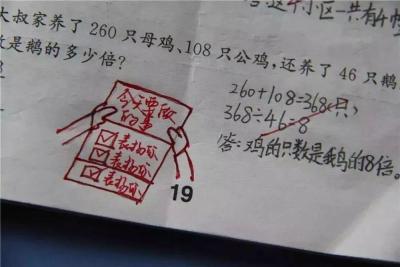 这个小区一共有4幢
大叔家养了 260 只母鸡、108 只公鸡，还养了 46 只鹅
数是鹅的多少倍？
260+108=368(只)
368÷46=8
答：鸡的只数是鹅的8倍。
今天要做
的事
☑表扬你
☑表扬你
☑表扬你
19